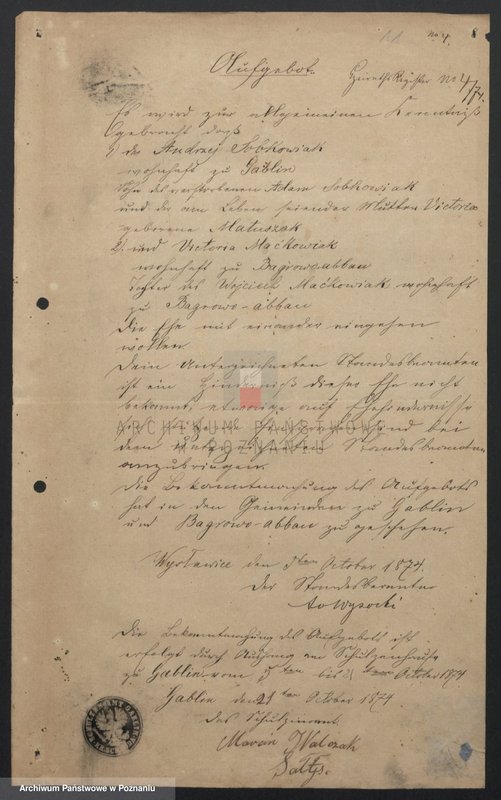 No 4. 8
Aufgebot. Heiraths Register No 4/74.
Es wird zur allgemeinen Kenntniß
gebracht daß
1) der Andrzej Sobkowiak
wohnhaft zu Gablin
Sohn des verstorbenen Adam Sobkowiak
und der am Leben seiender Mutter Victoria
geborene Matuszak
2) und Victoria Maćkowiak
wohnhaft zu Bagrowo-abbau
Tochter des Wojciech Maćkowiak wohnhaft
zu Bagrowo-abbau
die Ehe mit einander eingehen
wollen.
Dem Unterzeichneten Standesbeamten
ist ein Hinderniß dieser Ehe nicht
bekannt, etwaige auf Ehehindernisse
bei
dem Unterzeichneten Standesbeamten
anzubringen.
Die Bekanntmachung des Aufgebots
hat in den Gemeinden zu Gablin
und Bagrowo-abbau zu geschehen.
Wysławice den 5ten October 1874.
Der Standesbeamte
Wysocki
Die Bekanntmachung des Aufgebots ist
erfolgt durch Aushang am Schulzenhause
zu Gablin vom 5ten bis 21ten October 1874
Gablin den 21ten October 1874
Das Schulzenamt
Marcin Walczak
Sołtys.
ARCHIWUM PAŃSTWOWE
W POZNANIU
Archiwum Państwowe w Poznaniu